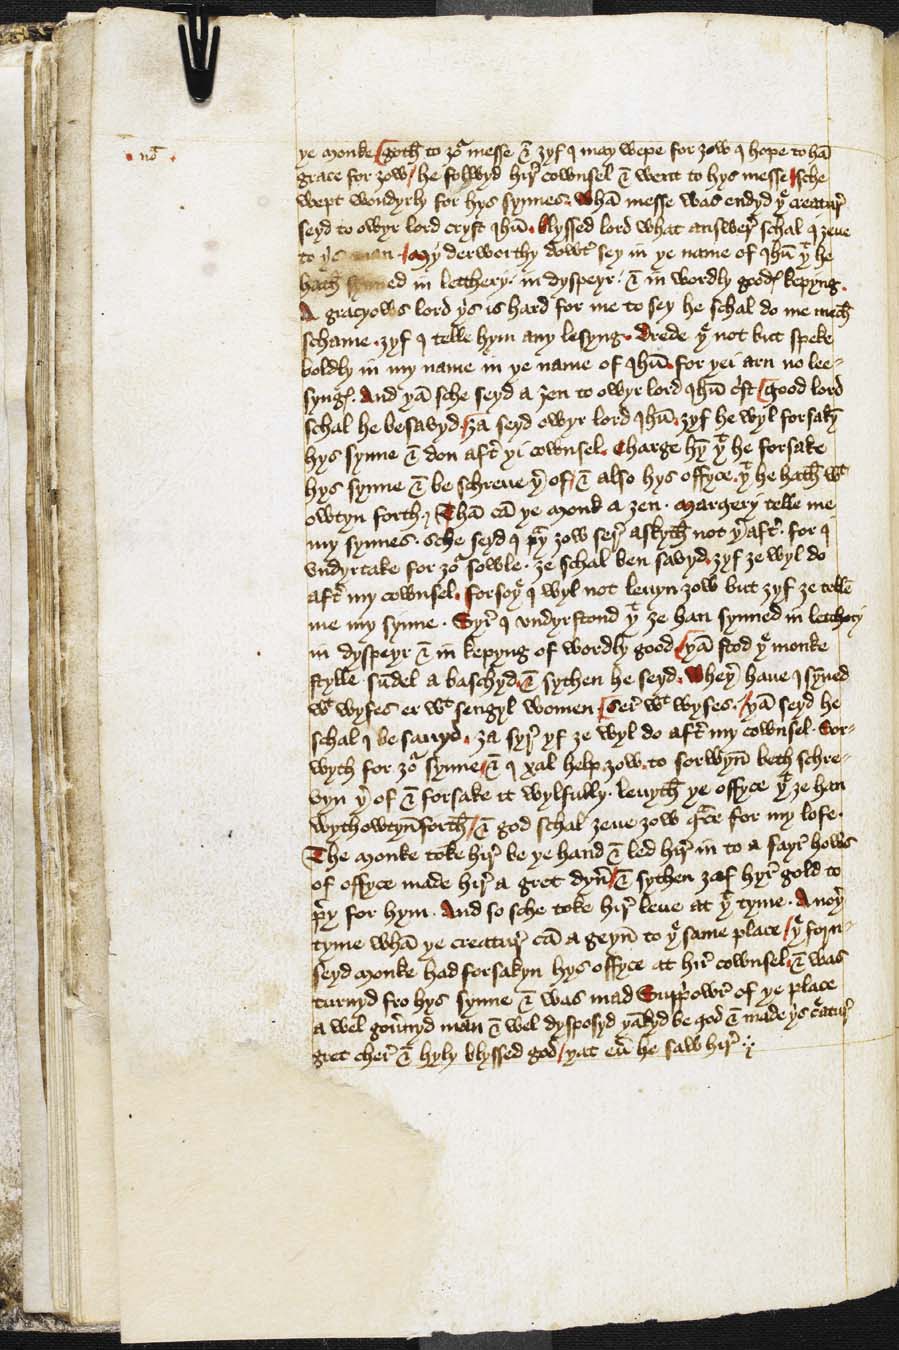 nō
ye monke / goth to ȝor messe & ȝyf I may wepe for ȝow I hope to hā
grace for ȝow / he folwyd hir cownsel & went to hys messe / sche
wept wondyrly for hys synnes. Whā messe was endyd ye creatur
seyd to owyr lord cryst Ihū. blyssed lord what answer schal I ȝeue
to ys man / My derworthy dowtr sey in ye name of Ihū yt he
hath synned in letthery. in dyspeyr. & in wordly goodes kepyng.
A gracyows lord ys is hard for me to sey he schal do me mech
schame. ȝyf I telle hym any lesyng. Drede ye not but speke
boldly in my name in ye name of Ihū. for yei arn no lee-
synges. And yā sche seyd a ȝen to owyr lord Ihū crist / Good lord
schal he be savyd. / ȝa seyd owyr lord Ihū. ȝyf he wyl forsakȳ
hys synne & don aftr yi cownsel. Charge hȳ yt he forsake
hys synne & be schreue yr of / & also hys offyce yt he hath wt
owtyn forth. / Thā cā ye monk a ȝen. Margery telle me
my synnes. Sche seyd I pray ȝow ser askyth not yr aftr. for I
vndyrtake for ȝor sowle. ȝe schal ben savyd. ȝyf ȝe wyl do
aftr my cownsel. forsoy I wyl not leuyn ȝow but ȝyf ȝe telle
me my synne. Syr I vndyrstond yt ȝe han synned in letthery
in dyspeyr & in kepyng of wordly good / yā stod ye monke
stylle sūdel a baschyd. & sythen he seyd. Wheyr haue I syned
wt wyfes er wt sengyl women / Ser wt wyfes. / yā seyd he
schal I be sauyd. ȝa syr yf ȝe wyl do aftr my cownsel. Sor-
wyth for ȝor synne / & I xal help ȝow to sorwyn beth schre-
vyn yr of & forsake it wylfully. leuyth ye offyce yt ȝe han
wythowtyn forth / & god schal ȝeue ȝow grce for my lofe.
The monke toke hir be ye hand & led hir in to a fayr hows
of offyce made hir a gret dynr / & sythen ȝaf hyr gold to
pray for hym. And so sche toke hir leue at yt tyme. A noyr
tyme whā ye creatur cā a geyn to ye same place / ye forn-
seyd monke had forsakyn hys offyce at hir cownsel & was
turnyd fro hys synne & was mad Suppriowr of ye place
a wel gouernyd man & wel dysposyd yākyd be god & made ys creatur
gret cher & hyly blyssed god / yat euer he saw hir.